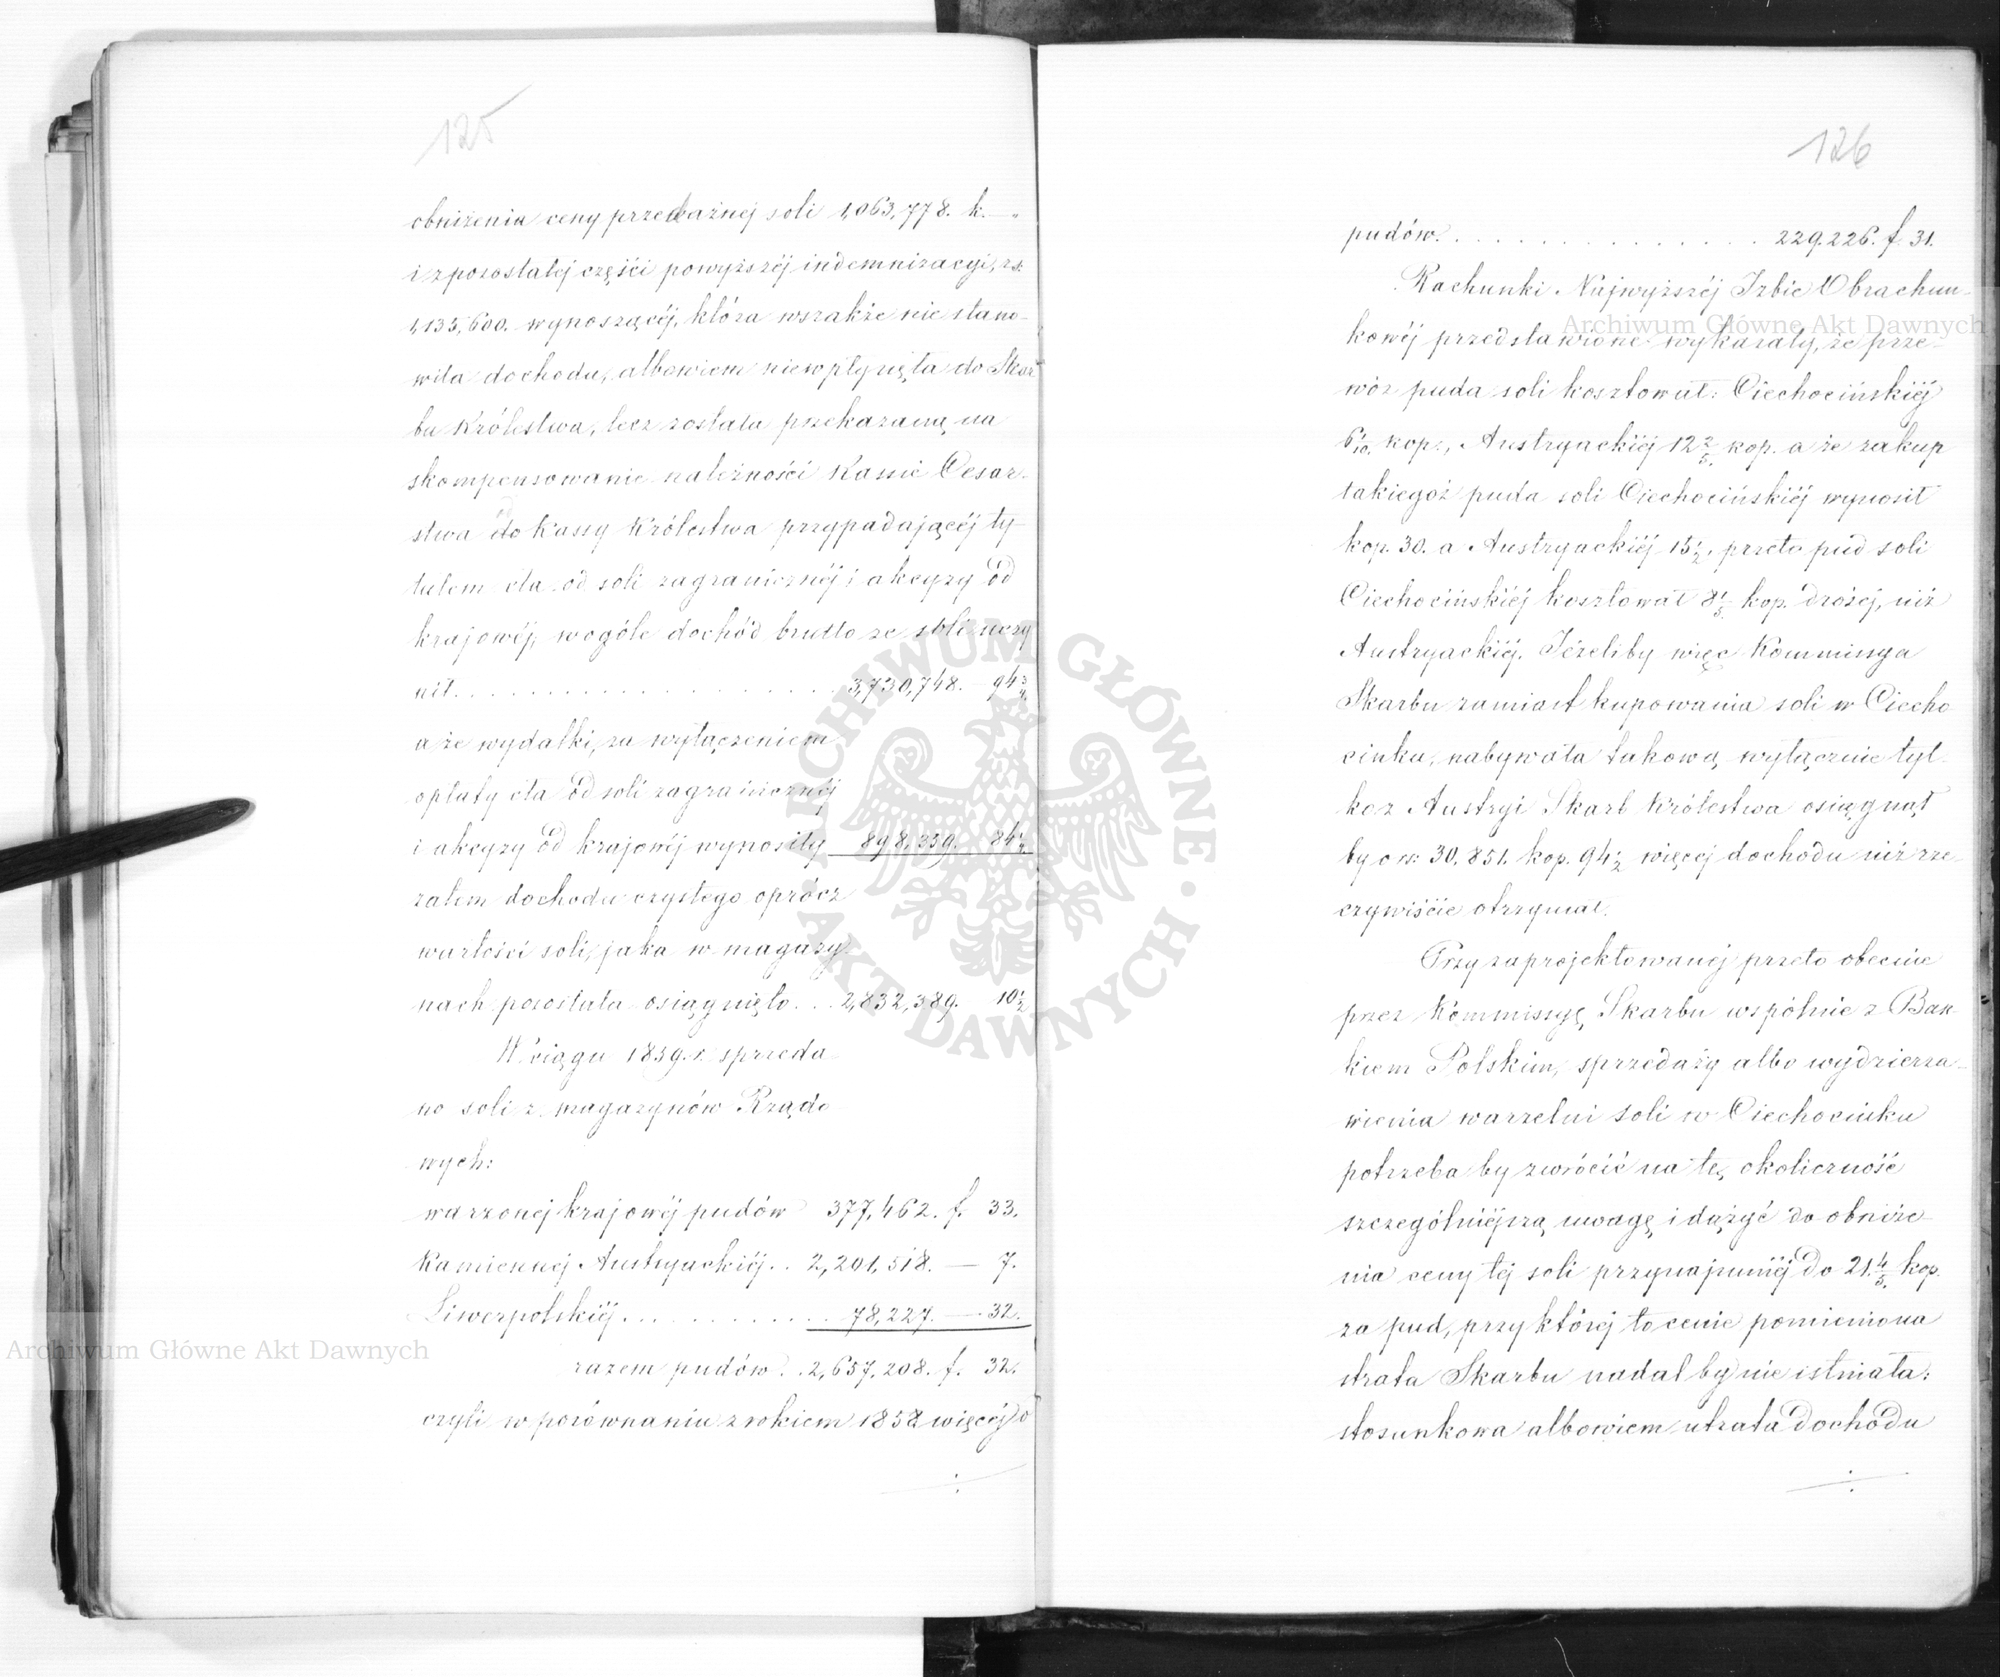 125
obniżenia ceny przedażnej soli 1,063,778. k. — „
i z pozostałej części powyższéj indemnizacyi, rs:
1,135,600. wynoszącéj, która wszakże nie stano-
wiła dochodu, albowiem niewpłynęła do Skar-
bu Królestwa, lecz została przekazaną na
skompensowanie należności Kassie Cesar-
stwa do Kassy Królestwa przypadającéj ty-
tułem cła od soli zagranicznéj i akcyzy od
krajowéj, wogóle dochód brutto ze soli uczy
nił . . . . . . . . . . . . . . . . . . . 3,730,748. — 94 3/4.
a że wydatki, za wyłączeniem
opłaty cła od soli zagranicznéj
i akcyzy od krajowéj wynosiły 898,359. 84 1/4.
zatem dochodu czystego oprócz
wartości soli, jaka w magazy-
nach pozostała osiągnięto . . . 2,832,389. 10 1/2
W ciągu 1859. r. sprzeda-
no soli z magazynów Rządo-
wych:
warzonej krajowéj pudów 377,462. f. 33.
Kamiennej Austryackiéj . . 2,201,518. — 7.
Liwerpolskiéj . . . . . . . . . . . 78,227. — 32.
razem pudów . . 2,657,208. f. 32.
czyli w porównaniu z rokiem 1858 więcéj o
126
pudów. . . . . . . . . . . . . . . 229.226. f. 31.
Rachunki Najwyższéj Izbie Obrachun-
kowéj przedstawione wykazały, że prze-
wóz puda soli kosztował: Ciechocińskiéj
6 1/10. kop., Austryackiéj 12 2/5. kop. a że zakup
takiegoż puda soli Ciechocińskiéj wynosił
kop. 30. a Austryackiéj 15 1/2, przeto pud soli
Ciechocińskiéj kosztował 8 1/5. kop. drożej, niż
Austryackiéj. Jeżeliby więc Kommissya
Skarbu zamiast kupowania soli w Ciecho-
cinku, nabywała takową wyłącznie tyl-
ko z Austryi Skarb Królestwa osiągnął
by o rs: 30.851. kop. 94 1/2 więcej dochodu niż rze-
czywiście otrzymał.
Przy zaprojektowanej przeto obecnie
przez Kommissyę Skarbu wspólnie z Ban-
kiem Polskim, sprzedaży albo wydzierża-
wienia warzelni soli w Ciechocinku
potrzeba by zwrócić na tę okoliczność
szczególniéjszą uwagę i dążyć do obniże-
nia ceny tej soli przynajmniéj do 21. 4/5. kop.
za pud, przy której to cenie pomieniona
strata Skarbu nadal by nie istniała:
stosunkowa albowiem utrata dochodu
Archiwum Główne Akt Dawnych
Archiwum Główne Akt Dawnych
ARCHIWUM GŁÓWNE · AKT DAWNYCH ·